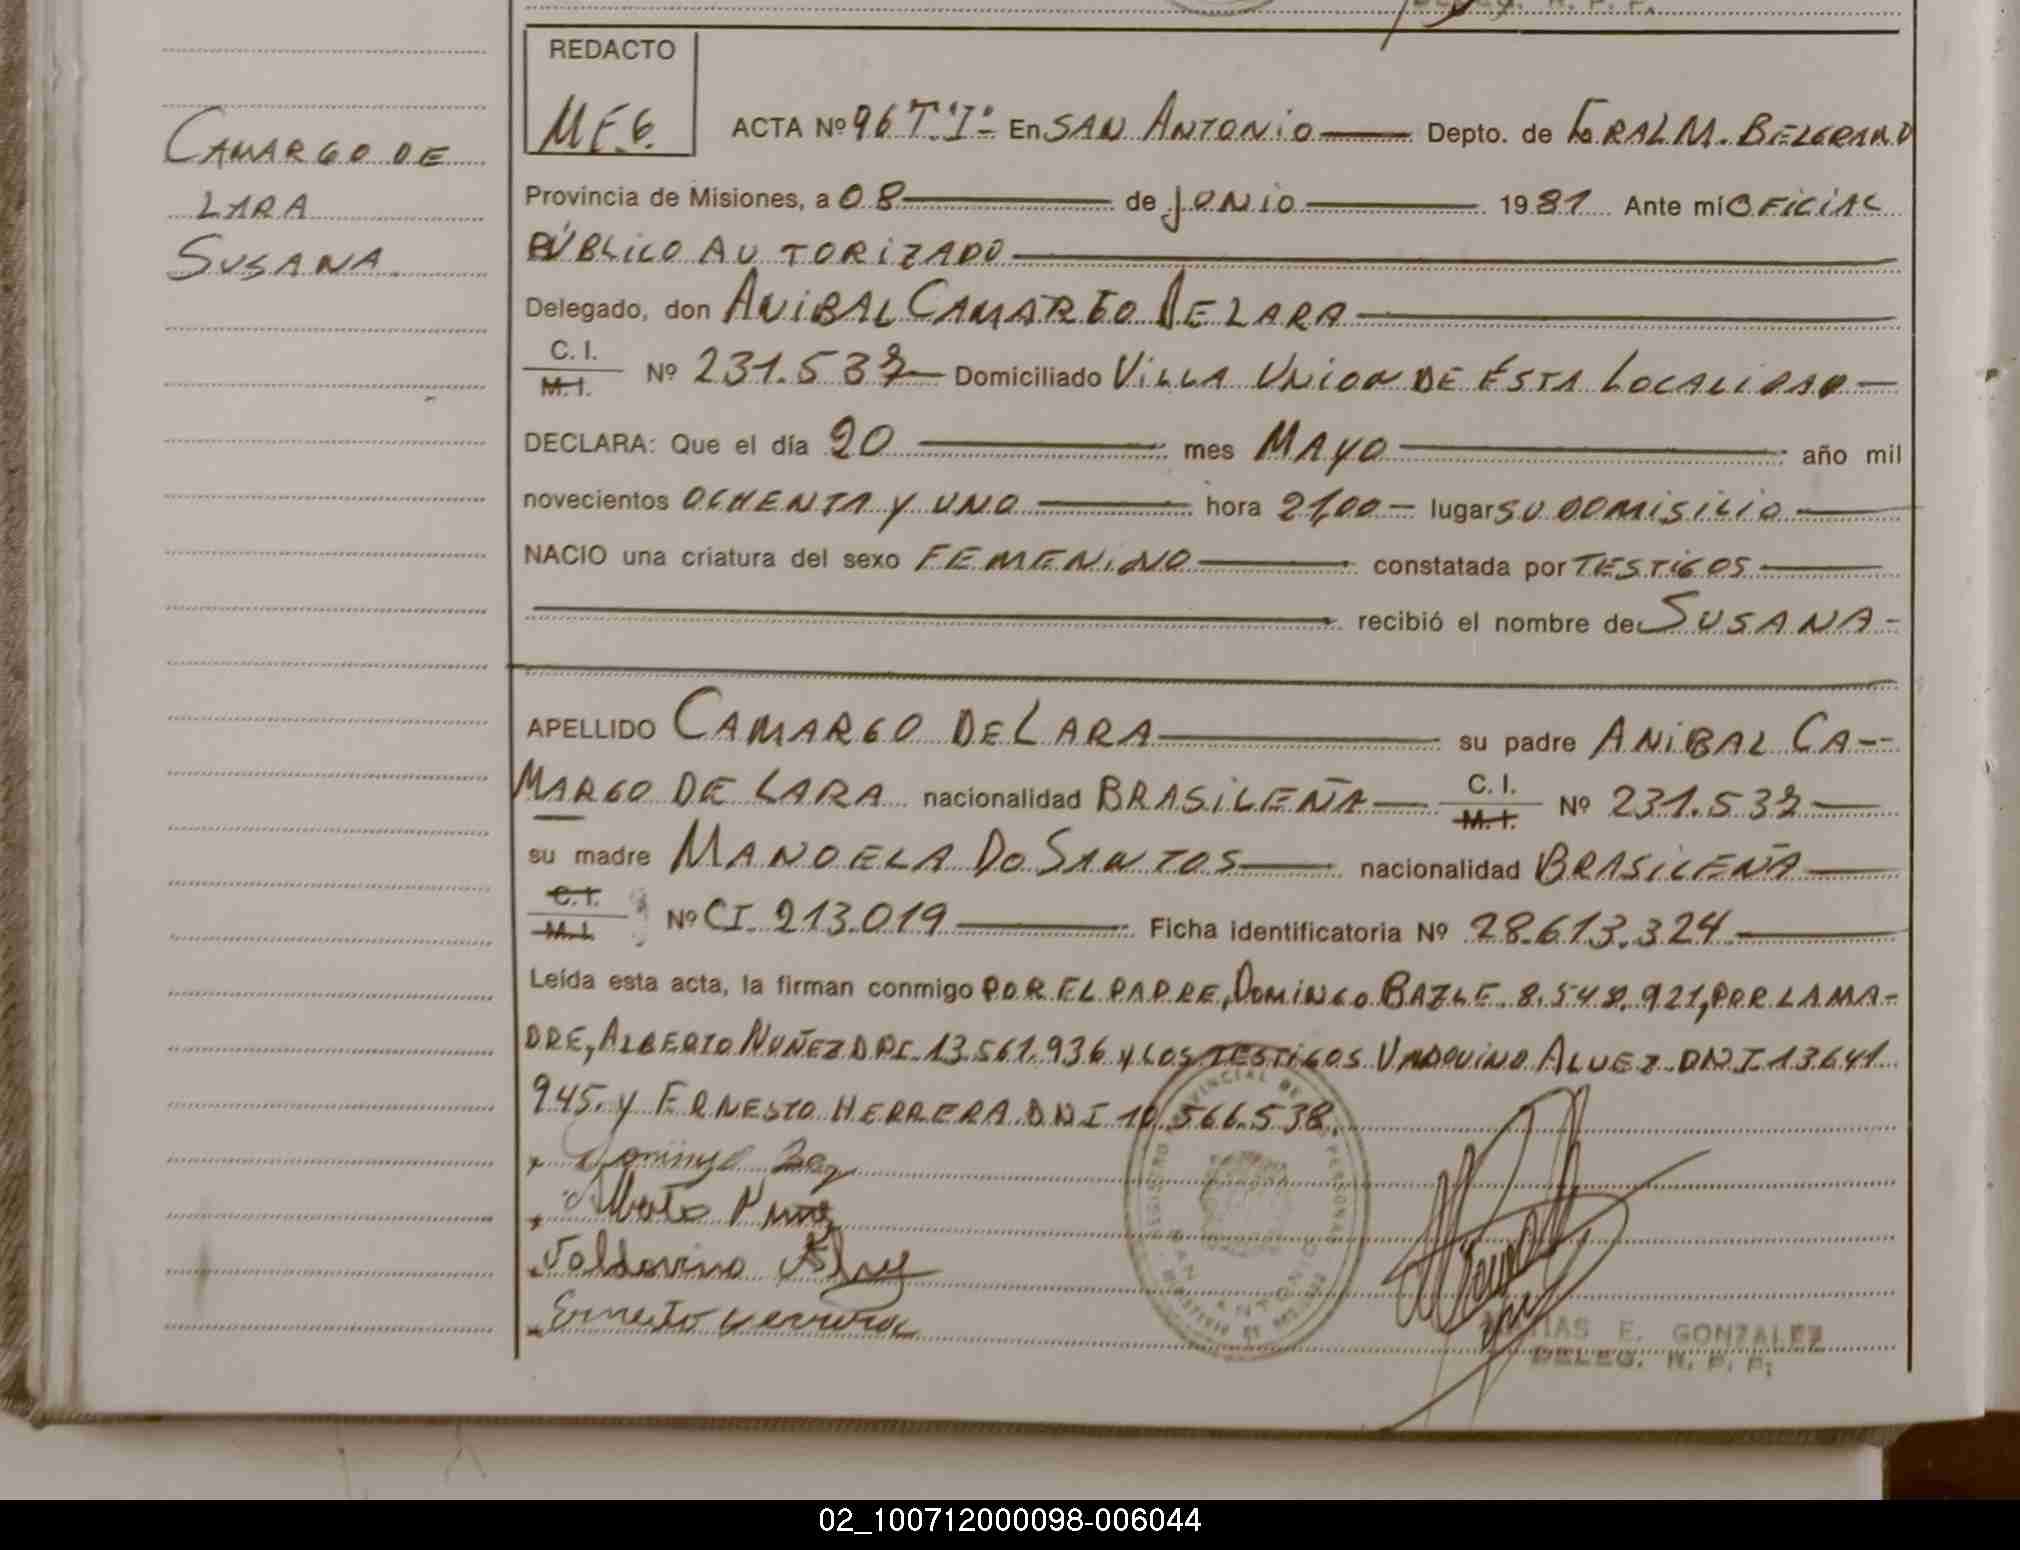 CAMARGO DE
LARA
SUSANA.
REDACTO
MEG.
ACTA Nº 96 T.Iº- En SAN ANTONIO Depto. de GRAL M. BELGRANO
Provincia de Misiones, a 08 de JUNIO 1981 Ante mí OFICIAL
PÚBLICO AUTORIZADO
Delegado, don ANIBAL CAMARGO DE LARA
C. I.
M. I. Nº 231.532 Domiciliado VILLA UNION DE ÉSTA LOCALIDAD
DECLARA: Que el día 20 mes MAYO año mil
novecientos OCHENTA Y UNO hora 21,00 lugar SU DOMISILIO
NACIO una criatura del sexo FEMENINO constatada por TESTIGOS
recibió el nombre de SUSANA
APELLIDO CAMARGO DE LARA su padre ANIBAL CA-
MARGO DE LARA nacionalidad BRASILEÑA C. I. M. I. Nº 231.532
su madre MANOELA DO SANTOS nacionalidad BRASILEÑA
C. I.
M. I. Nº CI. 213.019 Ficha identificatoria Nº 28.613.324
Leída esta acta, la firman conmigo POR EL PADRE, DOMINGO 8.548.921, POR LA MA-
DRE, ALBERTO NUÑEZ DNI. 13.561.936 y LOS TESTIGOS ALVEZ DNI 13.641
945. y ERNESTO HERRERA DNI 10.566.538.
Domingo
Alberto Nuñez
Valdovino Alvez
Ernesto Herrera
REGISTRO PROVINCIAL DE LAS PERSONAS
SAN ANTONIO
E. GONZALEZ
DELEG. R. P. P.
02_100712000098-006044